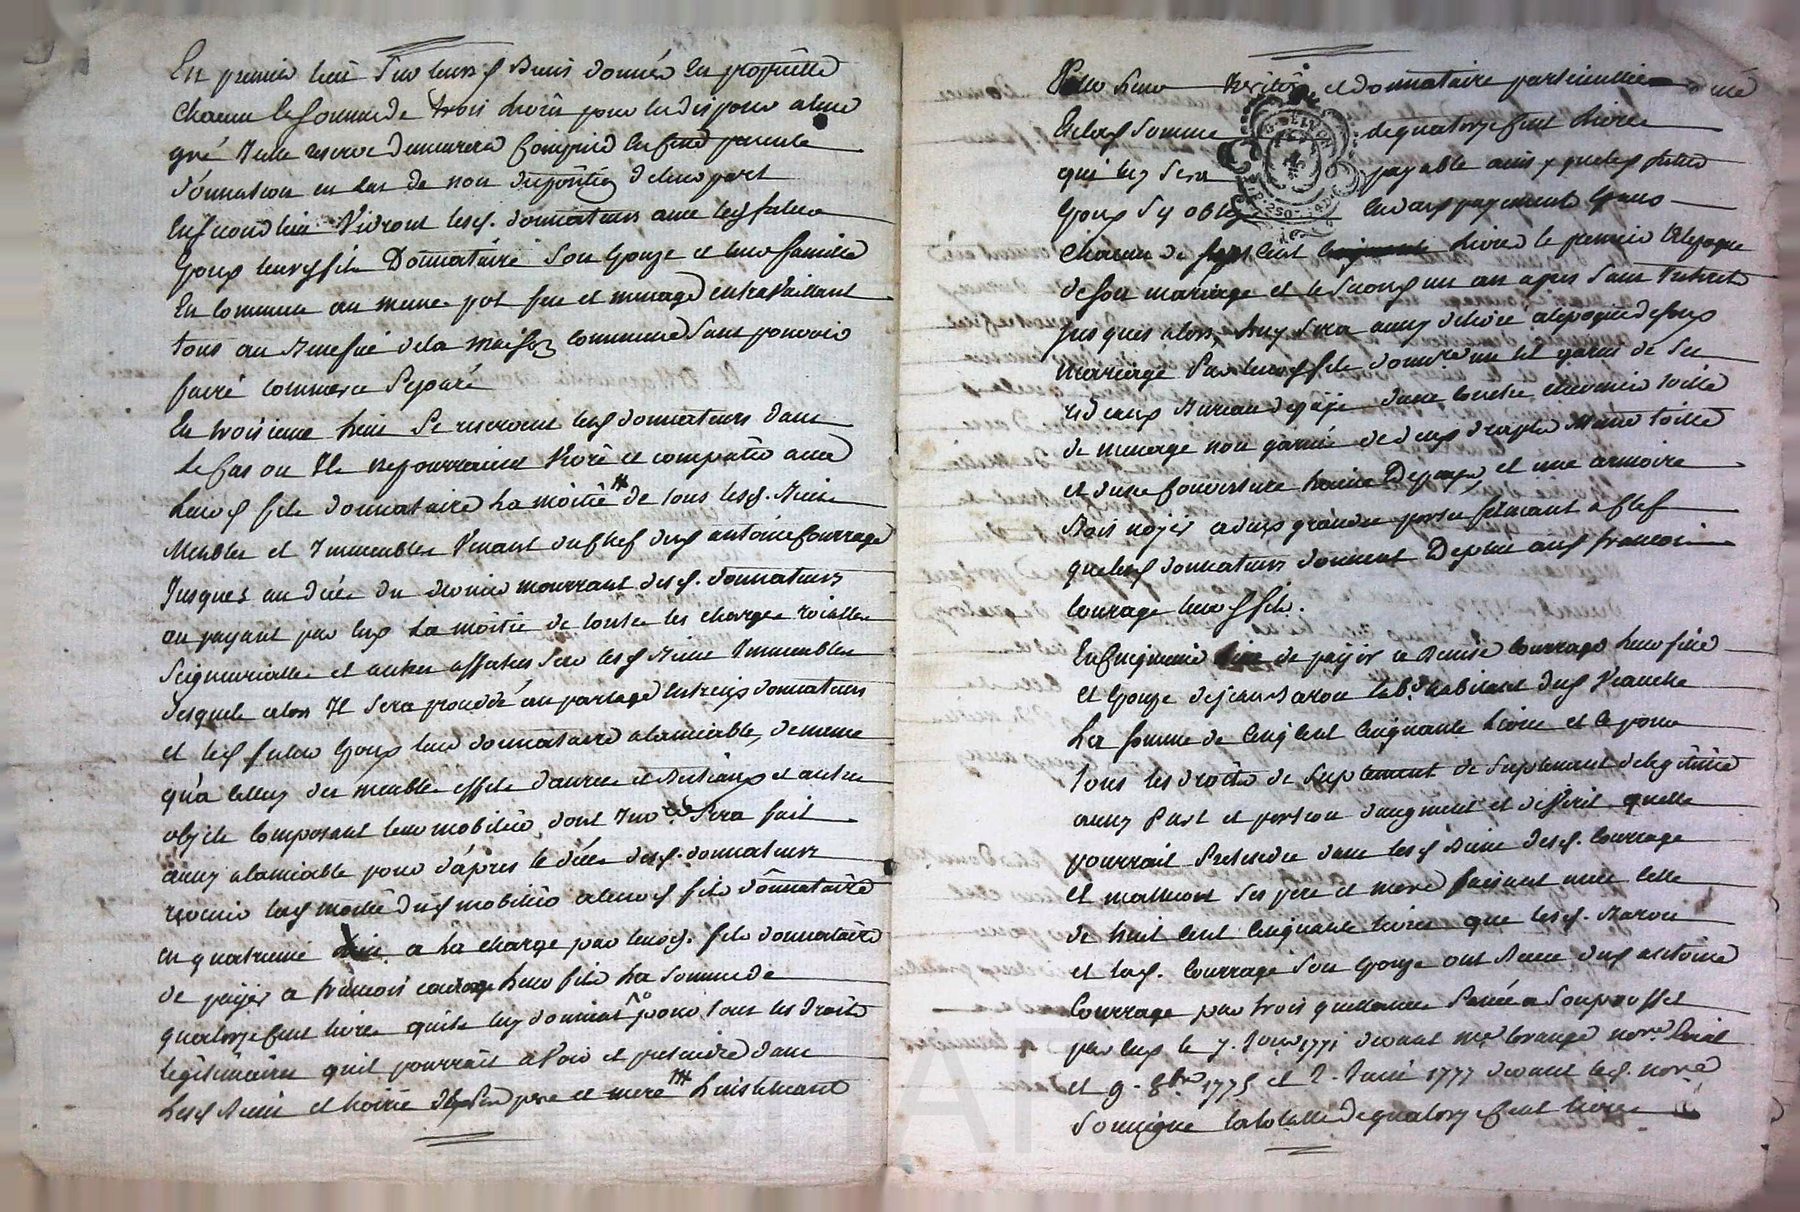 En premier lieu sur leurs d. Biens donnés En propriété
chacun la somme de trois livres pour en disposer a leur
gré Icelle reserve demeurera Comprise En fine presente
Donnation en cas de non disposition de leur part
En second lieu Vivront lesd. donnateurs avec lesd futurs
Epoux leurd. fils Donnataire son Epouze et leur famille
En commun au meme pot feu et menage en travaillant
tous au Benefice de la maison commune Sans pouvoir
faire commerce Separé
En troisieme lieu Se reservent lesd donnateurs dans
le Cas ou Ils ne pourraient Vivre et compatir avec
Leurd fils donnataire La moitié de tous lesd. Biens
Meubles et Immeubles Venant du Chef dud antoine Courrage
Jusques au décès du dernier mourrant desd. donnateurs
en payant par Eux La moitié de toutes les charges roialles
Seigneurialles et autres affectées Sur lesd Biens Immeubles
desquels alors Il Sera procédé au partage Entre eux donnateurs
et lesd futurs Epoux leur donnataire alamiable, de meme
qu'a Celluy des meubles effets danrées et Bestiaux et autres
objets Composant leur mobilier dont Inv.re Sera fait
aussy alamiable pour d'apres le décès desd. donnateurs
revenir lad moitié dud mobilier a leurd fils donnataire
en quatrieme lieu a la charge par leurd. fils donnataire
de payer a francois courage leur fils La somme de
quatorze Cent livres quils luy donnent pour tous les Droits
légitimaires quil pourrait avoir et pretendre dans
lesd Biens et hoirie de Ses pere et mere L'instituant
Pour Leur heritier et donnataire particullier
En lad Somme de quatorze Cent Livres
qui luy Sera payable ainsy que lesd futurs
Epoux Sy oblig En deux payements Egaux
chacun de sept Cent Livres le premier a l'epoque
de son mariage et le Second un an apres Sans Interets
Jusques alors, Luy Sera aussy délivré alepoque de Sond
mariage Par leurd fils donn.re un lit garni de Ses
rideaux Bureau de païs d'une couetre cuversin toille
de menage non garnie de deux draps meme toille
et d'une Couverture Depaye, et une armoire
Bois noyer a deux grandes portes fermant a Clef
que lesd donnateurs donnent De plus aud francois
Courage leurd fils.
En Cinquieme lieu de payer a Benise Courrage leur fille
et Epouze de Jean Baron lab.r habitant dud
La somme de Cinq Cent Cinquante Livres et ce pour
tous les droits de Suplement de Suplement de légitime
aussy Part et portion daugment et d'Esvoit quelle
pourrait Pretendre dans lesd Biens desd. Courrage
et mathieu Ses pere et mere faisant avec celle
de huit Cent Cinquante livres que lesd. Baron
et lad. Courrage Son Epouze ont Receu dud antoine
Courrage par trois quittances Passées a Son proffit
par Eux le 7. 1771 devant Me Evrange nore. Roial
et 9. 8bre 1775 et 2. Juin 1777 devant led. nore
Soussigné la totalle de quatorze Cent livres